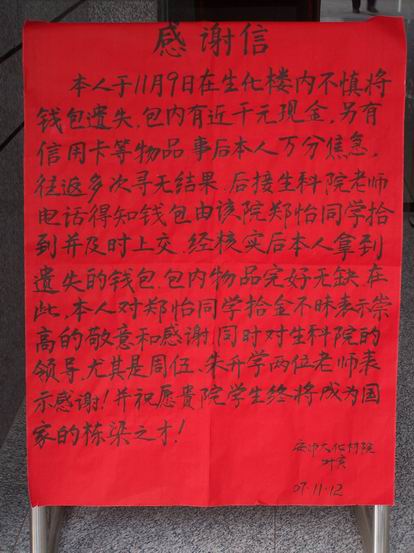 感谢信
本人于11月9日在生化楼内不慎将
钱包遗失.包内有近千元现金,另有
信用卡等物品事后本人万分焦急,
往返多次寻无结果.后接生科院老师
电话得知钱包由该院郑怡同学拾
到并及时上交.经核实后本人拿到
遗失的钱包.包内物品完好无缺.在
此,本人对郑怡同学拾金不昧表示崇
高的敬意和感谢.同时对生科院的
领导.尤其是周伍、朱升学两位老师表
示感谢!并祝愿贵院学生终将成为国
家的栋梁之才!
安师大化材院
07.11.12